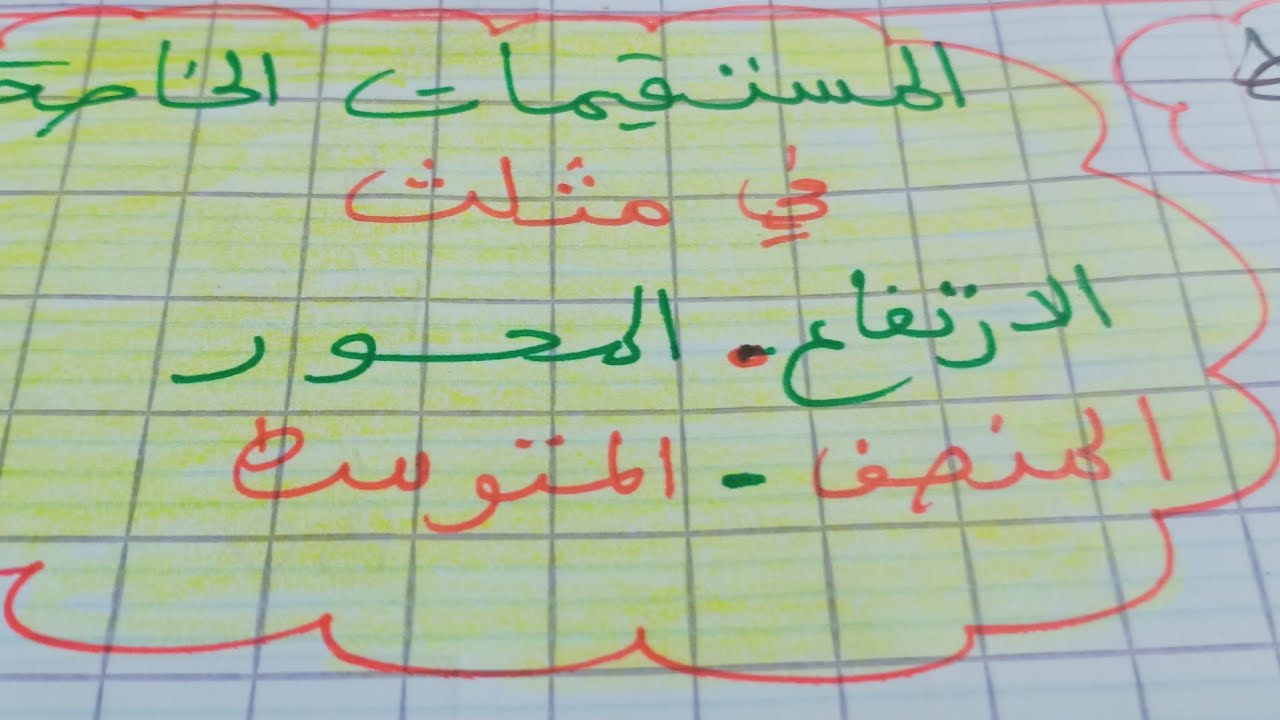 المستقيمات الخاصة
في مثلث
الارتفاع - المحور
المنصف - المتوسط